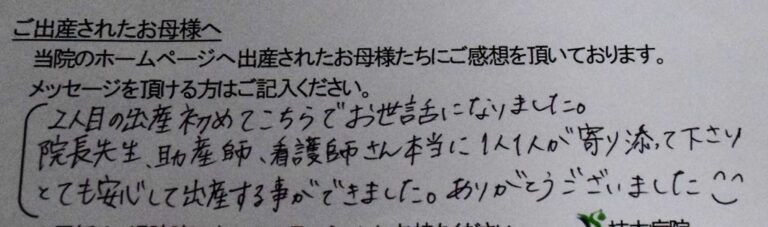 ご出産されたお母様へ
当院のホームページへ出産されたお母様たちにご感想を頂いております。
メッセージを頂ける方はご記入ください。
2人目の出産初めてこちらでお世話になりました。
院長先生、助産師、看護師さん本当に1人1人が寄り添って下さり
とても安心して出産する事ができました。ありがとうございました^^